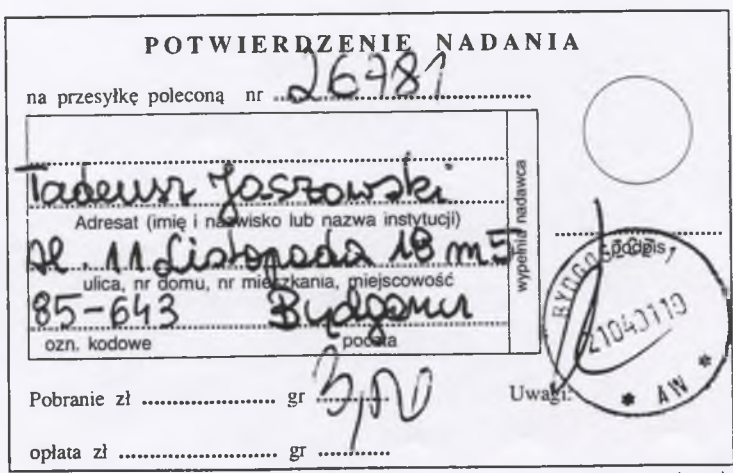 POTWIERDZENIE NADANIA
na przesyłkę poleconą nr 26781
Tadeusz Jaszowski
Adresat (imię i nazwisko lub nazwa instytucji)
Al. 11 Listopada 18 m5
ulica, nr domu, nr mieszkania, miejscowość
85-643 Bydgoszcz
ozn. kodowe poczta
wypełnia nadawca
podpis
BYDGOSZCZ 1
* AW *
Pobranie zł .................. gr 3,50
Uwagi:
opłata zł .................. gr ............